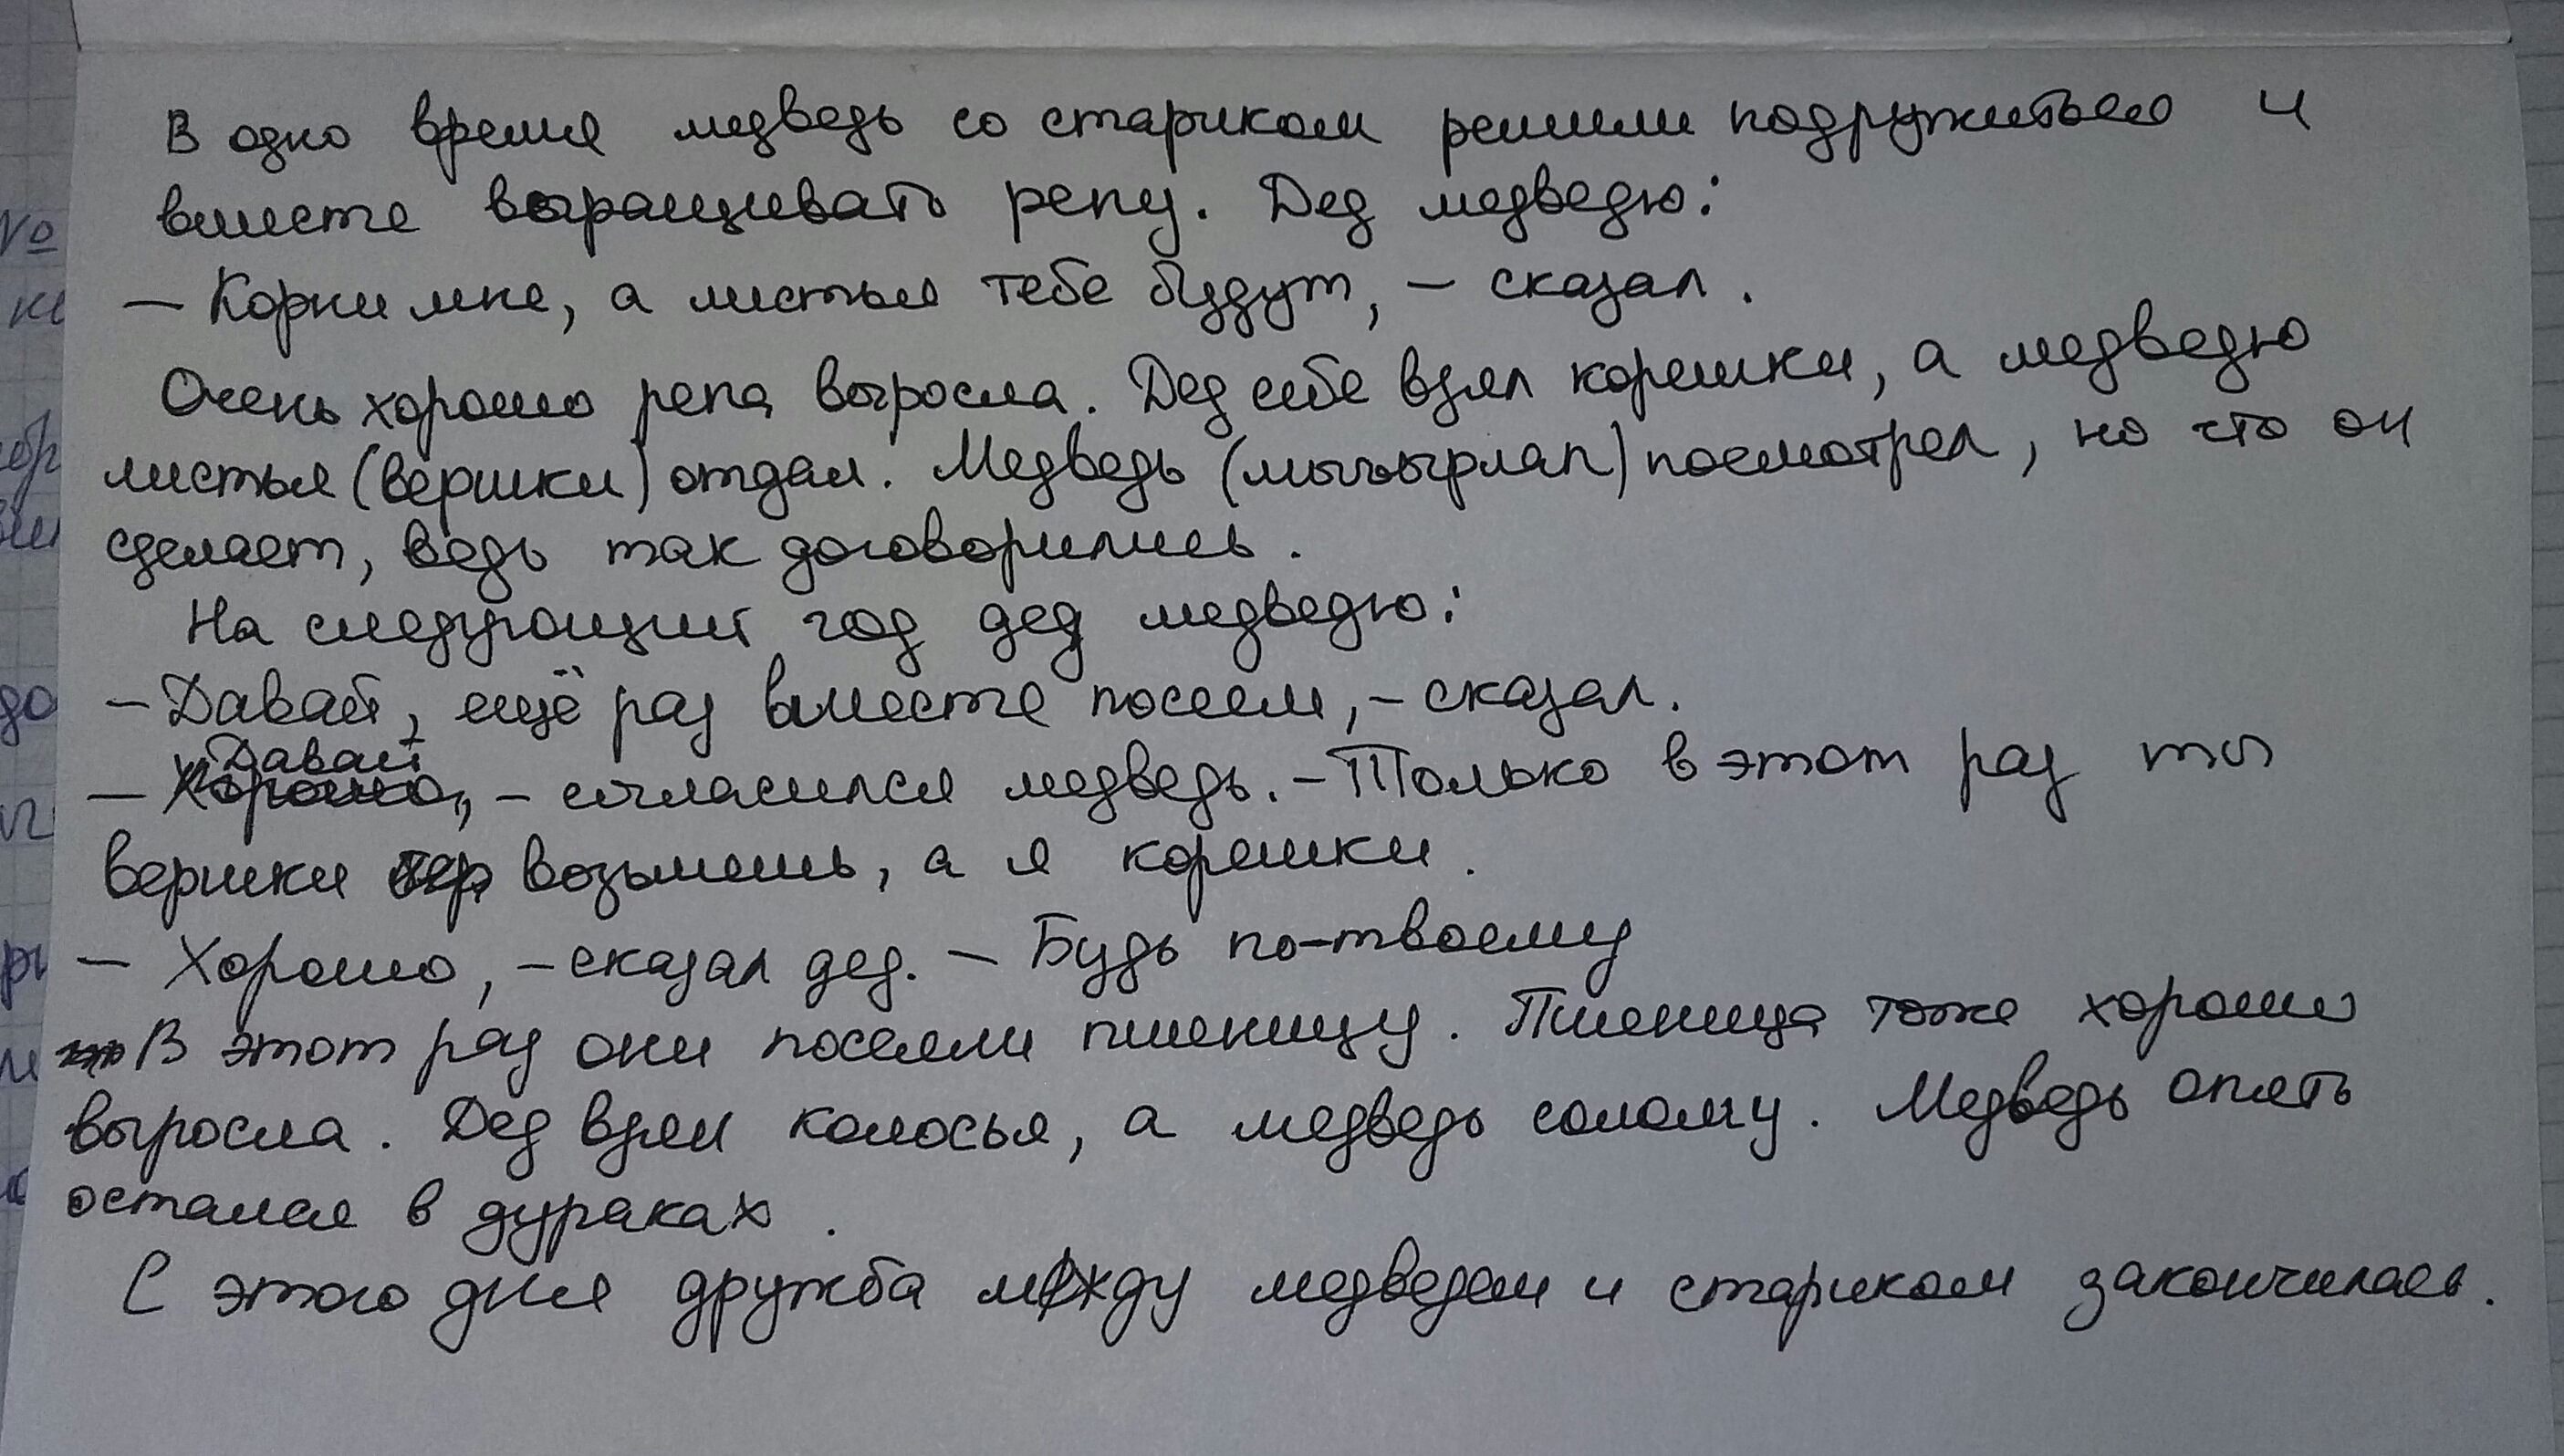 В одно время медведь со стариком решили подружиться и
вместе выращивать репу. Дед медведю:
— Корни мне, а листья тебе будут, — сказал.
Очень хорошо репа выросла. Дед себе взял корешки, а медведю
листья (вершки) отдал. Медведь (мычырлап) посмотрел, но что он
сделает, ведь так договорились.
На следующий год дед медведю:
— Давай, ещё раз вместе посеем, — сказал.
Давай
— Хорошо, — согласился медведь. — Только в этот раз ты
вершки возьмешь, а я корешки.
— Хорошо, — сказал дед. — Будь по-твоему
В этот раз они посеяли пшеницу. Пшеница тоже хорошо
выросла. Дед взял колосья, а медведь солому. Медведь опять
остался в дураках.
С этого дня дружба между медведем и стариком закончилась.